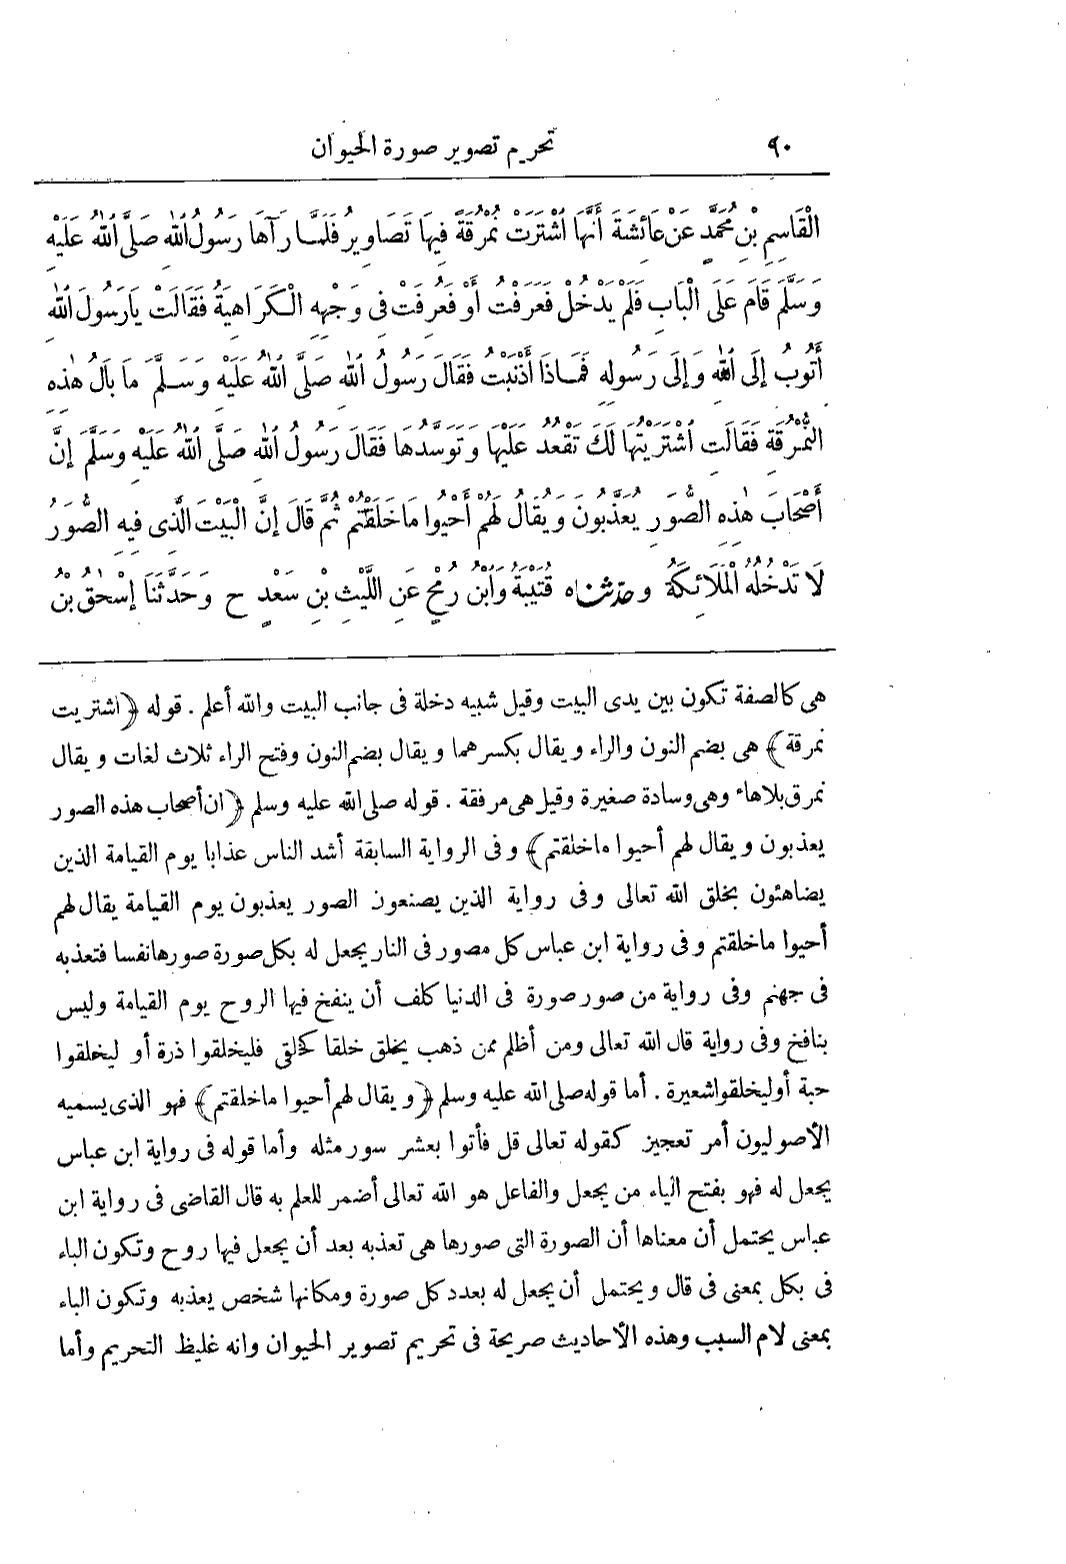 ٩٠ تحريم تصوير صورة الحيوان
الْقَاسِمِ بْنِ مُحَمَّدٍ عَنْ عَائِشَةَ أَنَّهَا اشْتَرَتْ نُمْرُقَةً فِيهَا تَصَاوِيرُ فَلَمَّا رَآهَا رَسُولُ اللهِ صَلَّى اللهُ عَلَيْهِ
وَسَلَّمَ قَامَ عَلَى الْبَابِ فَلَمْ يَدْخُلْ فَعَرَفْتُ أَوْ فَعُرِفَتْ فِى وَجْهِهِ الْكَرَاهِيَةُ فَقَالَتْ يَارَسُولَ اللهِ
أَتُوبُ إِلَى اللهِ وَإِلَى رَسُولِهِ فَمَاذَا أَذْنَبْتُ فَقَالَ رَسُولُ اللهِ صَلَّى اللهُ عَلَيْهِ وَسَلَّمَ مَا بَالُ هٰذِهِ
النُّمْرُقَةِ فَقَالَتِ اشْتَرَيْتُهَا لَكَ تَقْعُدُ عَلَيْهَا وَتَوَسَّدُهَا فَقَالَ رَسُولُ اللهِ صَلَّى اللهُ عَلَيْهِ وَسَلَّمَ إِنَّ
أَصْحَابَ هٰذِهِ الصُّوَرِ يُعَذَّبُونَ وَيُقَالُ لَهُمْ أَحْيُوا مَاخَلَقْتُمْ ثُمَّ قَالَ إِنَّ الْبَيْتَ الَّذِى فِيهِ الصُّوَرُ
لَا تَدْخُلُهُ الْمَلَائِكَةُ وحدثناه قُتَيْبَةُ وَابْنُ رُمْحٍ عَنِ اللَّيْثِ بْنِ سَعْدٍ ح وَحَدَّثَنَا إِسْحٰقُ بْنُ
هى كالصفة تكون بين يدى البيت وقيل شبيه دخلة فى جانب البيت والله أعلم . قوله ﴿اشتريت
نمرقة﴾ هى بضم النون والراء ويقال بكسرهما ويقال بضم النون وفتح الراء ثلاث لغات ويقال
نمرق بلاهاء وهى وسادة صغيرة وقيل هى مرفقة . قوله صلى الله عليه وسلم ﴿ان أصحاب هذه الصور
يعذبون ويقال لهم أحيوا ماخلقتم﴾ وفى الرواية السابقة أشد الناس عذابا يوم القيامة الذين
يضاهئون بخلق الله تعالى وفى رواية الذين يصنعون الصور يعذبون يوم القيامة يقال لهم
أحيوا ماخلقتم وفى رواية ابن عباس كل مصور فى النار يجعل له بكل صورة صورها نفسا فتعذبه
فى جهنم وفى رواية من صور صورة فى الدنيا كلف أن ينفخ فيها الروح يوم القيامة وليس
بنافخ وفى رواية قال الله تعالى ومن أظلم ممن ذهب يخلق خلقا كخلقى فليخلقوا ذرة أو ليخلقوا
حبة أوليخلقوا شعيرة . أما قوله صلى الله عليه وسلم ﴿ويقال لهم أحيوا ماخلقتم﴾ فهو الذى يسميه
الأصوليون أمر تعجيز كقوله تعالى قل فأتوا بعشر سور مثله وأما قوله فى رواية ابن عباس
يجعل له فهو بفتح الياء من يجعل والفاعل هو الله تعالى أضمر للعلم به قال القاضى فى رواية ابن
عباس يحتمل أن معناها أن الصورة التى صورها هى تعذبه بعد أن يجعل فيها روح وتكون الباء
فى بكل بمعنى فى قال ويحتمل أن يجعل له بعدد كل صورة ومكانها شخص يعذبه وتكون الباء
بمعنى لام السبب وهذه الأحاديث صريحة فى تحريم تصوير الحيوان وانه غليظ التحريم وأما